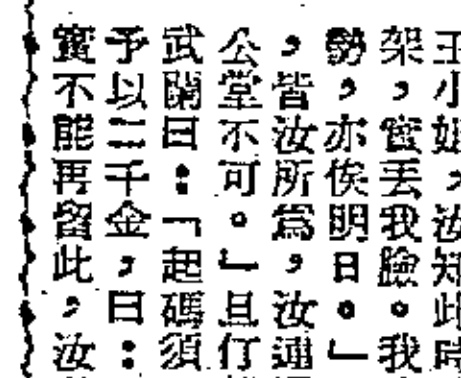 王小姐,汝知此時
架,實丟我臉。我
勢,亦俟明日。」
,皆汝所爲,汝連
公堂不可。」旦仃
武關曰:「起碼須
予以二千金,曰:
實不能再留此,汝